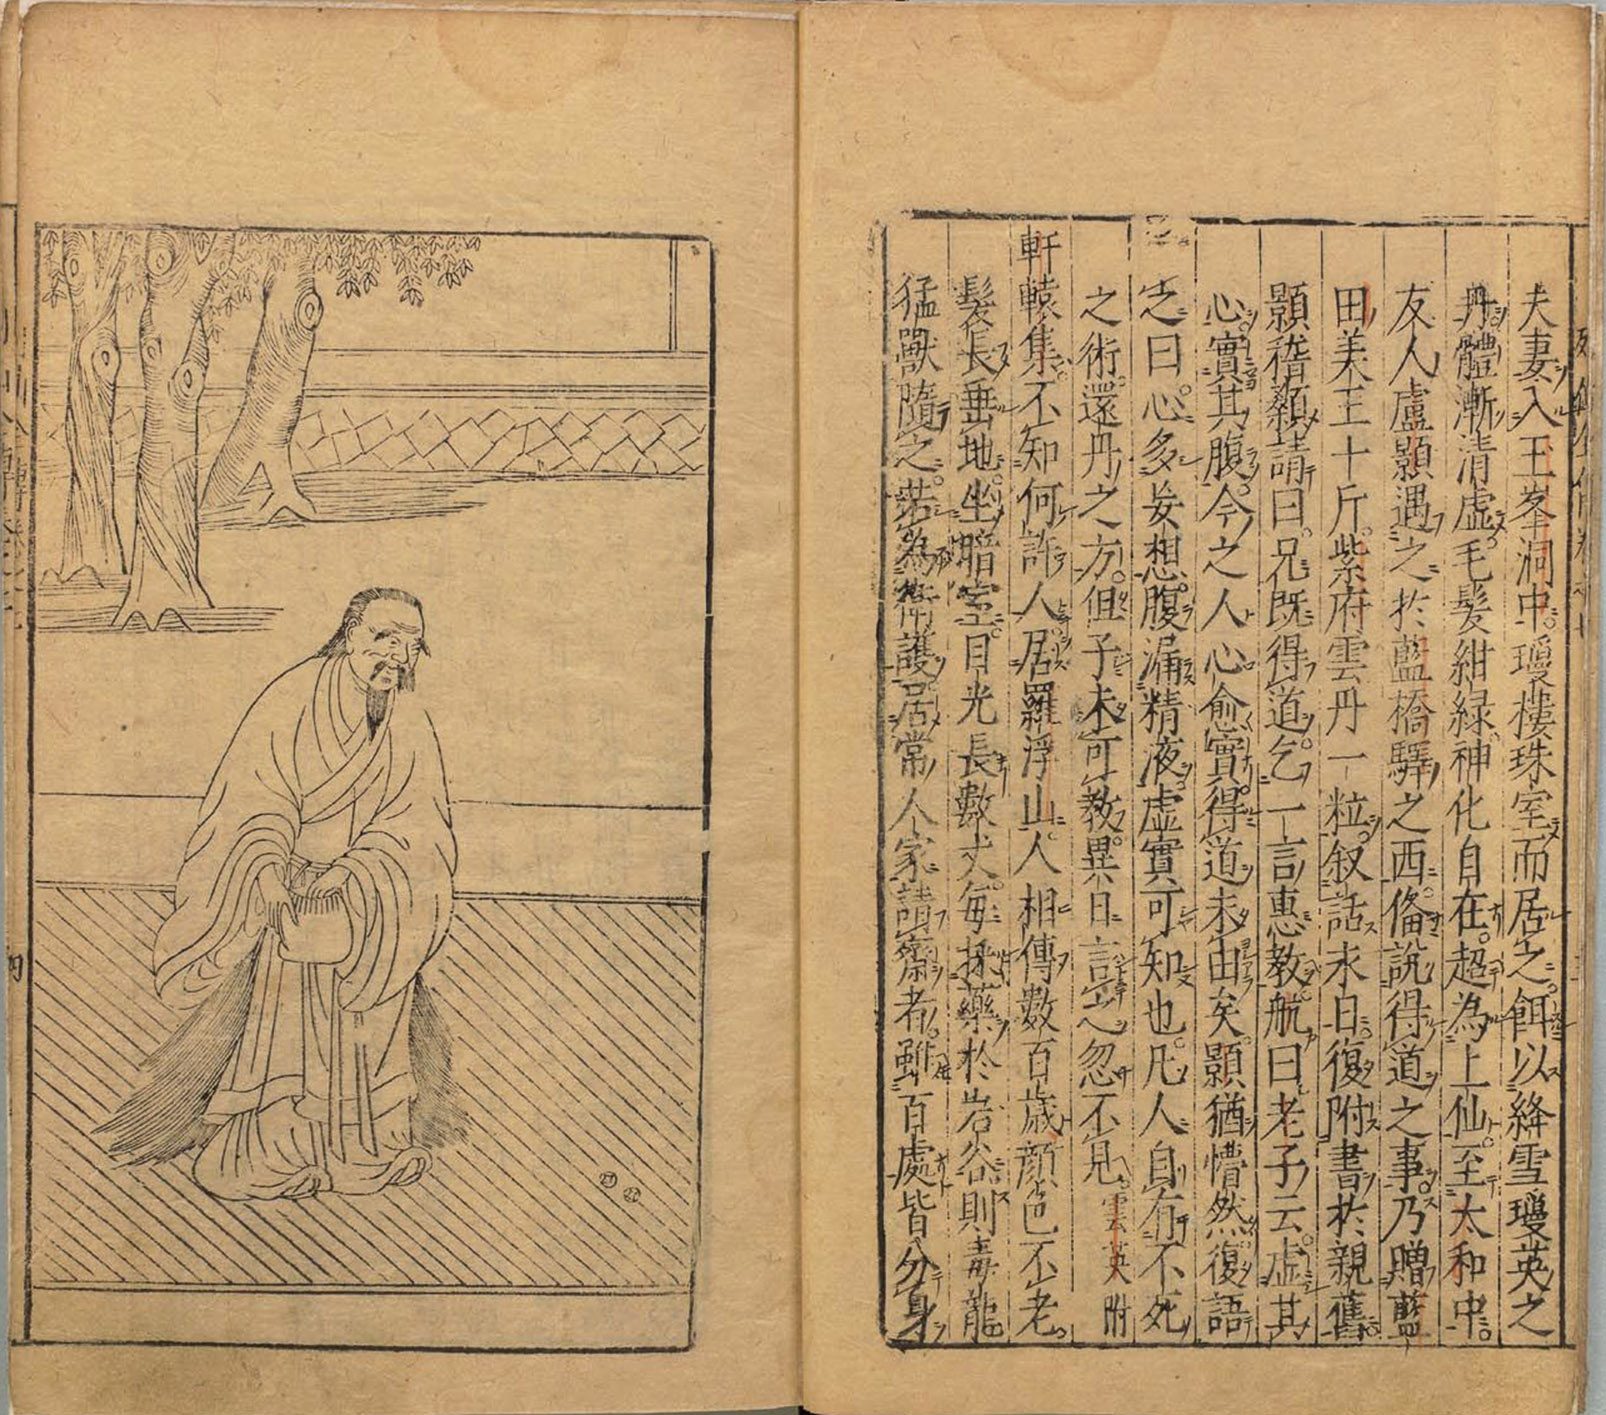 夫妻入玉峯洞中。瓊樓珠室而居之。餌以絳雪瓊英之
丹。體漸清虛。毛髮紺緑。神化自在。超為上仙。至太和中。
友人盧顥遇之於藍橋驛之西。俻說得道之事。乃贈藍
田美玉十斤。紫府雲丹一粒。叙話永日。復附書於親舊。
顥稽顙請曰。兄既得道。乞一言惠教。航曰老子云。虛其
心。實其腹。今之人心愈實。得道未由矣。顥猶懵然。復語
之曰。心多妄想。腹漏精液。虛實可知也。凡人自有不死
之術。還丹之方。但子未可教。異日言之。忽不見。雲英附
軒轅集。不知何許人。居羅浮山。人相傳數百歲。顔色不老。
髮長垂地。坐暗室。目光長數丈。每採藥於岩谷。則毒龍
猛獸隨之。若為衛護。居常人家請齋者。雖百處皆分身